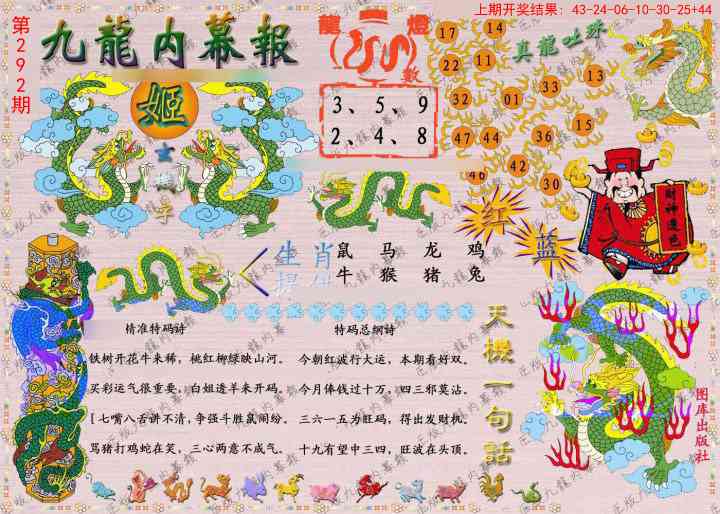 上期开奖结果：43-24-06-10-30-25+44
第292期
九龍内幕報
龍 燈
數
3、5、9
2、4、8
17 14
22 11 13
32 01 33
47 44 36 15
46 42 30
真龍吐珠
姬
玄機字
红
蓝
财神送包
生肖
鼠 马 龙 鸡
牛 猴 猪 兔
精准特码诗
铁树开花牛来稀，桃红柳绿映山河。
买彩运气很重要，白姐透羊来开码。
[七嘴八舌讲不清，争强斗胜鼠闹纷。
骂猪打鸡蛇在笑，三心两意不成气。
特码总纲诗
今朝红波行大运，本期看好双。
今月俸钱过十万，四三邪莫沾。
三六一五为旺码，得出发财机。
十九有望中三四，旺波在头顶。
天機一句話
图库出版社